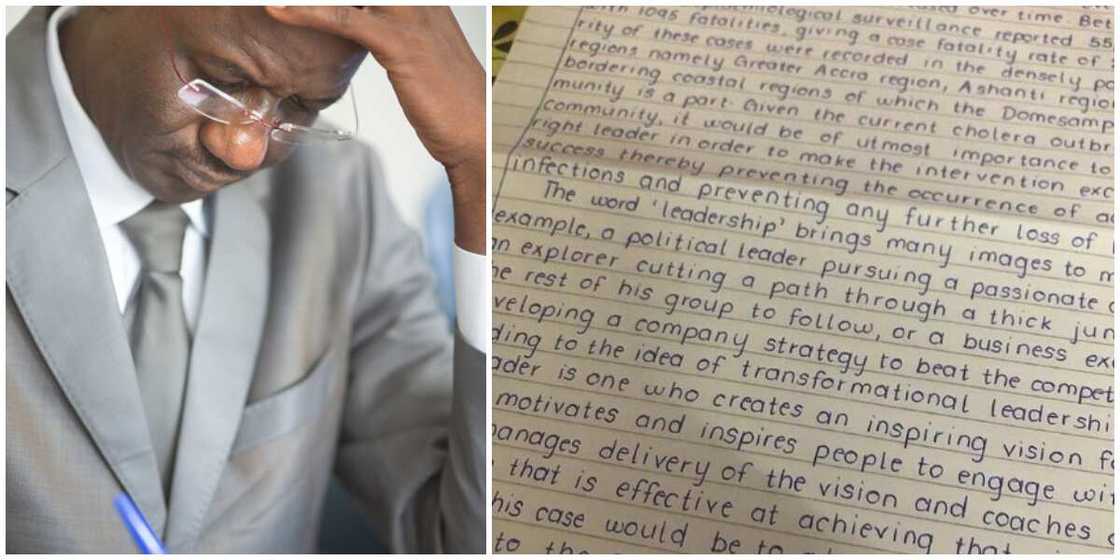 over time. Bet
surveillance reported 55
with 1095 fatalities, giving a case fatality rate of
rity of these cases were recorded in the densely po
regions namely Greater Accra region, Ashanti regio
bordering coastal regions of which the Domesamp
munity is a part. Given the current cholera outbr
community, it would be of utmost importance to
right leader in order to make the intervention exc
success thereby preventing the occurrence of a
infections and preventing any further loss of
The word 'leadership' brings many images to m
example, a political leader pursuing a passionate
n explorer cutting a path through a thick jun
he rest of his group to follow, or a business ex
veloping a company strategy to beat the compet
ding to the idea of transformational leadershi
ader is one who creates an inspiring vision f
motivates and inspires people to engage wi
anages delivery of the vision and coaches
that is effective at achieving that
his case would be to
to the